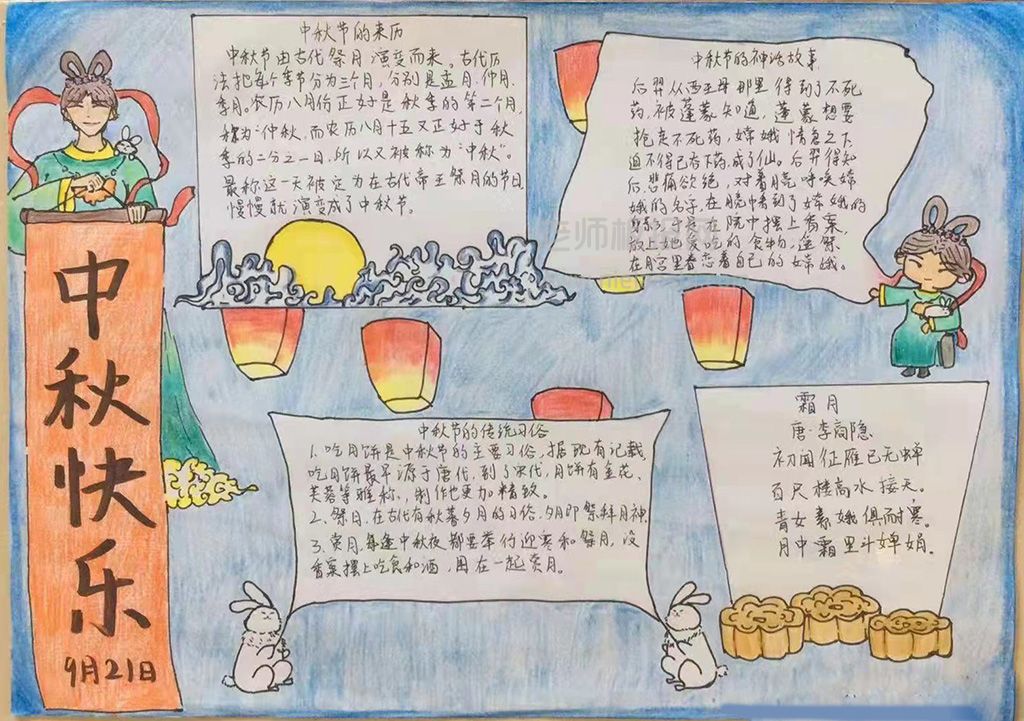 中秋快乐
9月21日
中秋节的来历
中秋节由古代祭月演变而来。古代历
法把每个季节分为三个月，分别是孟月、仲月、
季月。农历八月份正好是秋季的第二个月，
称为“仲秋，而农历八月十五又正好于秋
季的二分之一日，所以又被称为“中秋”。
最称这一天被定为在古代帝王祭月的节日，
慢慢就演变成了中秋节。
中秋节的神话故事
后羿从西王母那里得到了不死
药，被蓬蒙知道，蓬蒙想要
抢走不死药，嫦娥情急之下，
迫不得已吞下药，成了仙。后羿得知
后，悲痛欲绝，对着月亮呼唤嫦
娥的名子，在月中看到了嫦娥的
身影，于是在院中摆上香案，
放上她爱吃的食物，遥祭
在月宫里眷恋着自己的嫦娥。
中秋节的传统习俗
1、吃月饼是中秋节的主要习俗，据现有记载，
吃月饼最早源于唐代，到了宋代，月饼有金花、
芙蓉等雅称，制作也更加精致。
2、祭月，在古代有秋暮夕月的习俗，夕月即祭拜月神。
3、赏月，每逢中秋夜都要举行迎寒和祭月，设
香案摆上吃食和酒，围在一起赏月。
霜月
唐·李商隐
初闻征雁已无蝉
百尺楼高水接天。
青女素娥俱耐寒。
月中霜里斗婵娟。